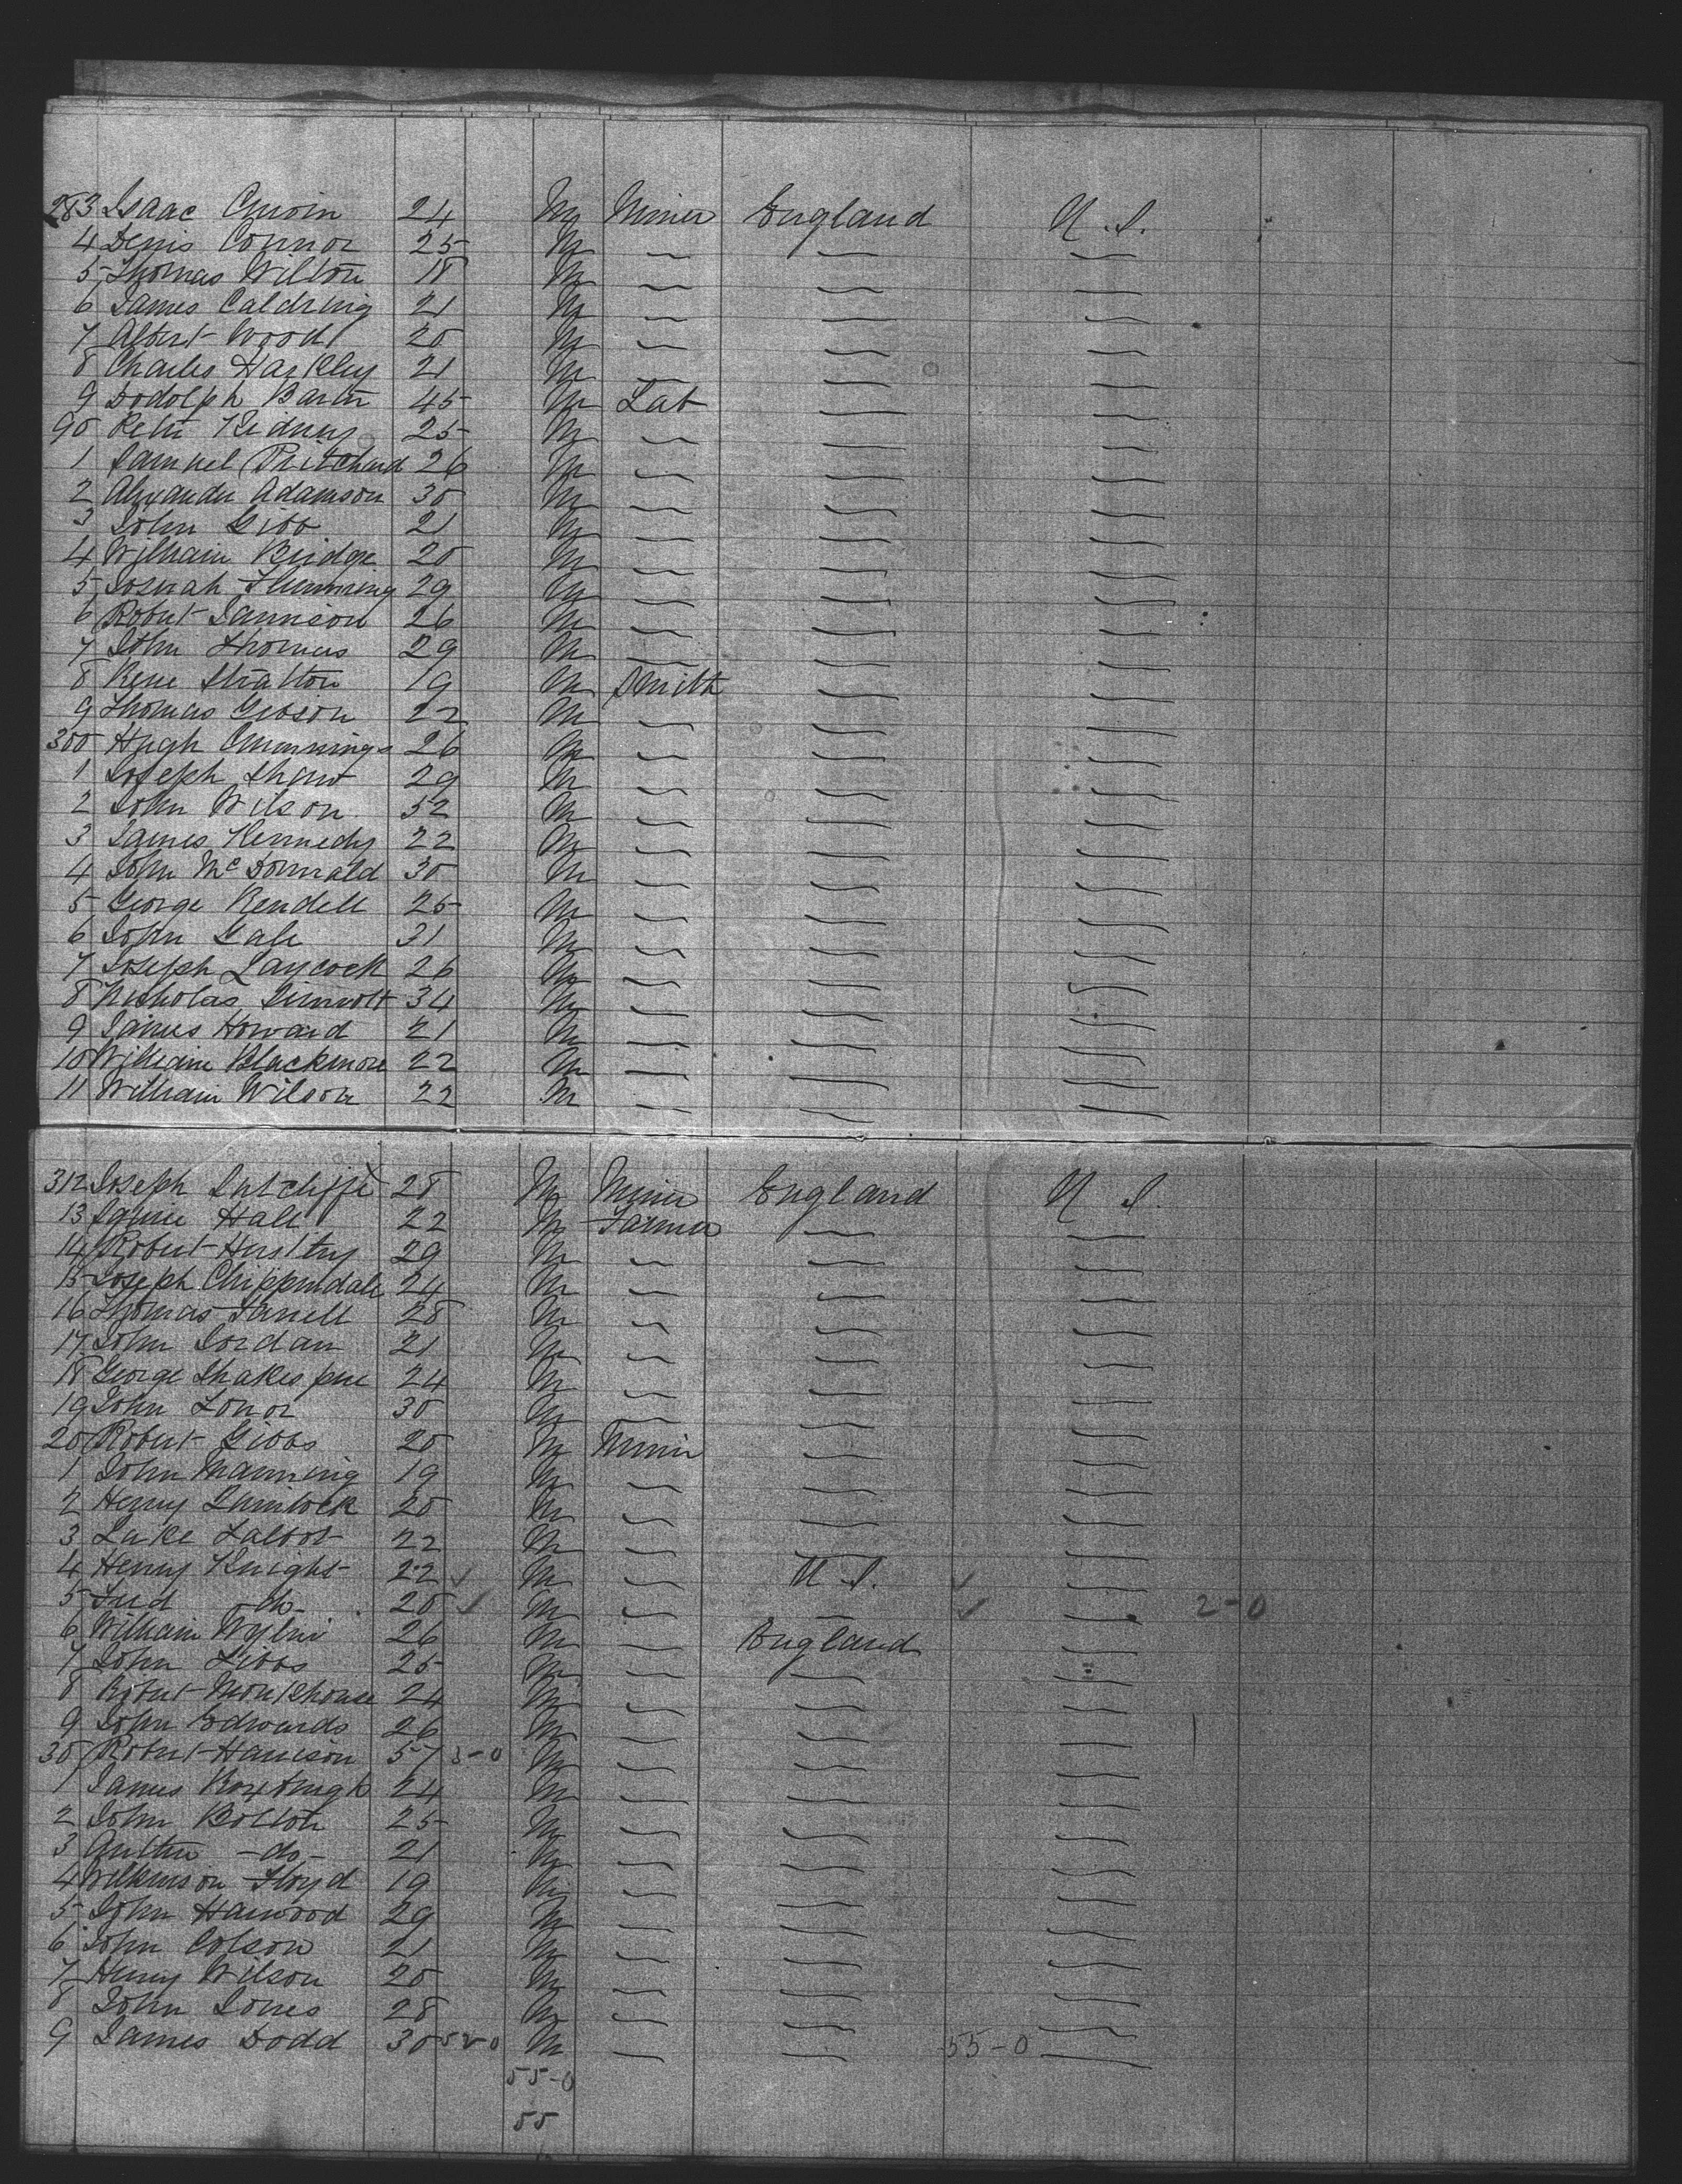 283 Isaac 24 M Miner England U.S.
4 Denis Connor 25 M — — —
5 Thomas Wilton 18 M — — —
6 James 21 M — — —
7 Albert Wood 20 M — — —
8 Charles Harkley 21 M — — —
9 Dodolph 45 M Lab — —
90 Peter Kidney 25 M — — —
1 Samuel Pritchard 26 M — — —
2 Alexander Adamson 30 M — — —
3 John Gibb 21 M — — —
4 William Bridge 20 M — — —
5 Flemming 29 M — — —
6 Robert 26 M — — —
7 John Thomas 29 M — — —
8 Stratton 19 M Smith — —
9 Thomas Gibson 22 M — — —
300 Hugh Cummings 26 M — — —
1 Joseph 29 M — — —
2 John Wilson 32 M — — —
3 James Kennedy 22 M — — —
4 John McDonnald 30 M — — —
5 George Rendell 25 M — — —
6 John Gale 31 M — — —
7 Joseph Laycock 26 M — — —
8 Nicholas 34 M — — —
9 James Howard 21 M — — —
10 William Blackmore 22 M — — —
11 William Wilson 22 M — — —
312 Joseph Sutcliffe 28 M Miner England U S.
13 Hall 22 M Farmer — —
14 Robert 29 M — — —
15 Joseph Chippendale 24 M — — —
16 Thomas 28 M — — —
17 John Jordan 21 M — — —
18 George Shakespere 24 M — — —
19 John 30 M — — —
20 Robert Gibbs 20 M Miner — —
1 John Manning 19 M — — —
2 Henry 20 M — — —
3 Luke Talbot 22 M — — —
4 Henry Knight 22 ✓ M — U.S. ✓ —
5 Fred -do- 20 ✓ M — — ✓ — 2-0
6 William 26 M — England —
7 John Gibbs 25 M — — —
8 Robert Monkhouse 24 M — — —
9 John Edwards 26 M — — —
30 Robert Harrison 57 3-0 M — — —
1 James 24 M — — —
2 John Bolton 25 M — — —
3 -do- 21 M — — —
4 Wilkinson Floyd 19 M — — —
5 John Harwood 29 M — — —
6 John Colson 21 M — — —
7 Henry Wilson 20 M — — —
8 John Jones 28 M — — —
9 James Dodd 30 52-0 M — — 55-0 —
55-0
55